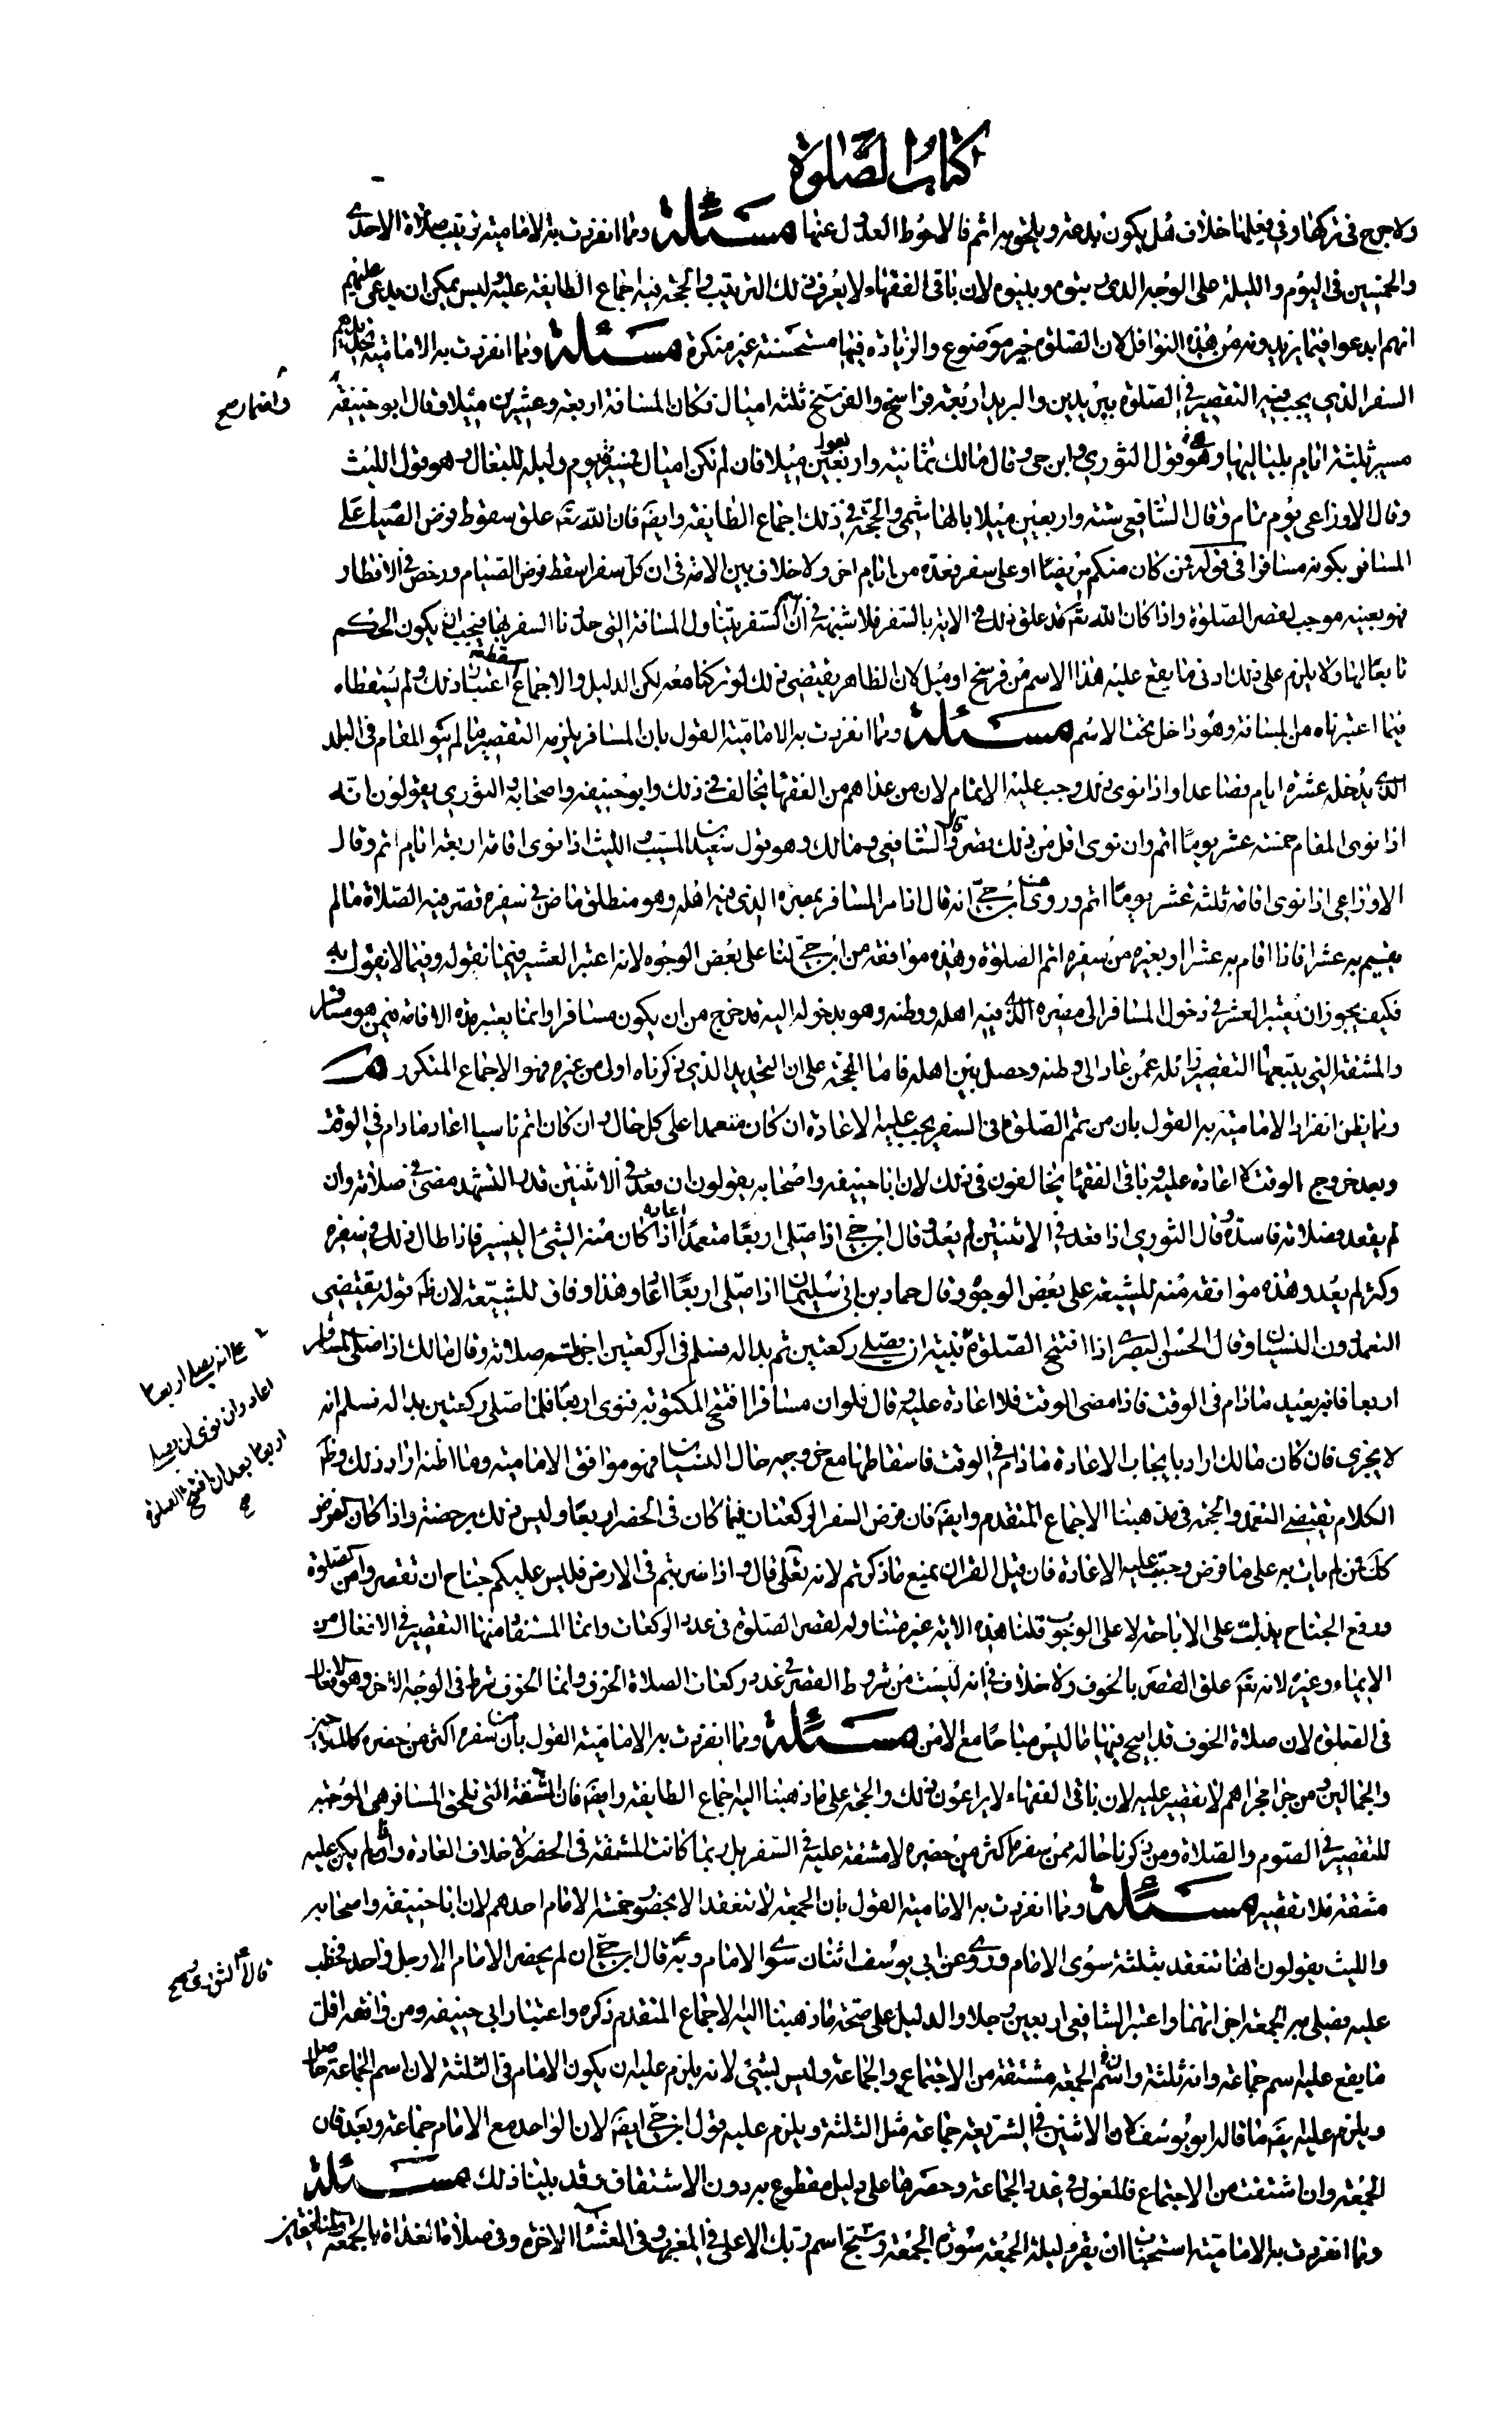 كتاب الصلوة
ولا حرج في تركها وفي فعلها خلاف هل يكون بدعة ويلحق به اثم فالاحوط العدول عنها مسئلة ومما انفردت به الامامية ترتيب صلاة الاحدى
والخمسين في اليوم والليلة على الوجه الذي بينوه لان باقي الفقهاء لا يعرف ذلك الترتيب والحجة فيه اجماع الطايفة عليه ليس يمكن ان يدعى عليهم
انهم ابدعوا فيما يزيدونه من هذه النوافل لان الصلوة خير موضوع والزيادة فيها مستحسنة غير منكرة مسئلة ومما انفردت به الامامية تحديدهم
السفر الذي يجب فيه التقصير في الصلوة ببريدين والبريد اربعة فراسخ والفرسخ ثلثة اميال فكان المسافة اربعة وعشرين ميلا وقال ابو حنيفة
واصحابه صح
مسير ثلثة ايام بلياليها وهو قول الثوري وابن حي وقال مالك ثمانية واربعين ميلا فان لم تكن اميال فمسيرة يوم وليلة للبغال وهو قول الليث
وقال الاوزاعي يوم تام وقال الشافعي ستة واربعين ميلا بالهاشمي والحجة في ذلك اجماع الطايفة وايضا فان الله تعالى علق سقوط فرض الصيام على
المسافر بكونه مسافرا في قوله فمن كان منكم مريضا او على سفر فعدة من ايام اخر ولا خلاف بين الامة في ان كل سفر اسقط فرض الصيام ورخص في الافطار
فهو بعينه موجب لقصر الصلوة واذا كان الله تعالى قد علق ذلك في الاية بالسفر فلا شبهة في ان اسم السفر يتناول المسافة التي حددنا السفر بها فيجب ان يكون الحكم
تابعا لها ولا يلزم على ذلك ادنى ما يقع عليه هذا الاسم من فرسخ او ميل لان الظاهر يقتضي ذلك لو تركنا معه لكن الدليل والاجماع اسقطا اعتبار ذلك ولم يسقطاه
فيما اعتبرناه من المسافة وهو داخل تحت الاسم مسئلة ومما انفردت به الامامية القول بان المسافر يلزمه التقصير ما لم ينو المقام في البلد
الذي يدخله عشرة ايام فصاعدا واذا نوى ذلك وجب عليه الاتمام لان من عداهم من الفقهاء يخالف في ذلك وابو حنيفة واصحابه والثوري يقولون انه
اذا نوى المقام خمسة عشر يوما اتم وان نوى اقل من ذلك قصر وقال الشافعي ومالك وهو قول سعيد بن المسيب والليث اذا نوى اقامة اربعة ايام اتم وقال
الاوزاعي اذا نوى اقامة ثلثة عشر يوما اتم وروي عن ابن حي انه قال اذا مر المسافر بمصره الذي فيه اهله وهو منطلق ماض في سفره قصر فيه الصلاة ما لم
يقيم به عشرا فاذا اقام به عشرا او بغيره من سفره اتم الصلوة وهذه موافقة من ابن حي لنا على بعض الوجوه لانه اعتبر العشر فيما نقوله وفيما لا نقول به
فكيف يجوز ان نعتبر العشر في دخول المسافر الى مصره الذي فيه اهله ووطنه وهو بدخوله اليه قد خرج من ان يكون مسافرا وانما يعتبر مدة الاقامة فيمن هو مسافر
والمشقة التي يتبعها التقصير زائلة عمن عاد الى وطنه وحصل بين اهله فاما الحجة على ان التحديد الذي ذكرناه اولى من غيره فهو الاجماع المتكرر
ومما يظن انفراد الامامية به القول بان من تمم الصلوة في السفر يجب عليه الاعادة ان كان متعمدا على كل حال وان كان اتم ناسيا اعاد ما دام في الوقت
وبعد خروج الوقت لا اعادة عليه وباقي الفقهاء يخالفون في ذلك لان ابا حنيفة واصحابه يقولون ان قعد في الاثنتين قدر التشهد مضى في صلاته وان
لم يقعد فصلاته فاسدة وقال الثوري اذا قعد في الاثنتين لم يعد وقال ابن حي اذا صلى اربعا متعمدا اعاد اذا كان منه الشيء اليسير فاذا طال ذلك في سفره
وكثر لم يعد وهذه موافقة منه للشيعة على بعض الوجوه وقال حماد بن ابي سليمان اذا صلى اربعا اعاد وهذا وفاق للشيعة لان ظاهر قوله يقتضي
التعمد دون النسيان وقال الحسن البصري اذا افتتح الصلوة بنية ان يصلي ركعتين ثم بدا له فسلم في الركعتين اجزأته صلاته وقال مالك اذا صلى المسافر
على انه يصلي اربعا
اعاد وان نوى ان يصلي
اربعا بعد ان افتتح الصلوة
صح
اربعا فانه يعيد ما دام في الوقت فاذا مضى الوقت فلا اعادة عليه قال فلو ان مسافرا افتتح المكتوبة فنوى اربعا فلما صلى ركعتين بدا له فسلم انه
لا يجزي فان كان مالك اراد بايجاب الاعادة ما دام في الوقت فاسقاطها مع خروجه حال النسيان فهو موافق الامامية وما اظنه اراد ذلك وظاهر
الكلام يقتضي التعمد والحجة في مذهبنا الاجماع المتقدم وايضا فان فرض السفر الركعتان فيما كان في الحضر اربعا وليس ذلك برخصة واذا كان الفرض
كذلك فمن لم يات به على ما فرض وجبت عليه الاعادة فان قيل القران يمنع ما ذكرتم لانه تعالى قال واذا ضربتم في الارض فليس عليكم جناح ان تقصروا من الصلوة
ورفع الجناح يدل على الاباحة لا على الوجوب قلنا هذه الاية غير متناوله لقصر الصلوة في عدد الركعات وانما المستفاد منها التقصير في الافعال من
الايماء وغيره لانه تعالى علق القصر بالخوف ولا خلاف في انه ليست من شروط القصر في عدد ركعات الصلاة الخوف وانما الخوف شرط في الوجه الاخر وهو الافعال
في الصلوة لان صلاة الخوف قد ابيح فيها ما ليس مباحا مع الامن مسئلة ومما انفردت به الامامية القول بأن من سفره اكثر من حضره كالملاحين
والجمالين ومن جرى مجراهم لا تقصير عليه لان باقي الفقهاء لا يراعون ذلك والحجة على ما ذهبنا اليه اجماع الطايفة وايضا فان المشقة التي تلحق المسافر هي الموجبة
للتقصير في الصوم والصلاة ومن ذكرنا حاله ممن سفره اكثر من حضره لا مشقة عليه في السفر بل ربما كانت المشقة في الحضر لانه خلاف العادة واذا لم يكن عليه
مشقة فلا تقصير مسئلة ومما انفردت به الامامية القول بان الجمعة لا تنعقد الا بحضور خمسة الامام احدهم لان ابا حنيفة واصحابه
والليث يقولون انها تنعقد بثلثة سوى الامام وروي عن ابي يوسف اثنان سوى الامام وبه قال ابن حي ان لم يحضر الامام الا رجل واحد فخطب
قال الثوري صح
عليه وصلى به الجمعة اجزاتهما واعتبر الشافعي اربعين رجلا والدليل على صحة ما ذهبنا اليه الاجماع المتقدم ذكره واعتبار ابي حنيفة ومن وافقه اقل
ما يقع عليه اسم جماعة وانه ثلثة واسم الجمعة مشتقة من الاجتماع والجماعة وليس بشيء لانه يلزم عليه ان يكون الامام في الثلثة لان اسم الجماعة حاصل
ويلزم عليه ايضا ما قاله ابو يوسف لان الاثنين في الشريعة جماعة مثل الثلثة ويلزم عليه قول ابن حي ايضا لان الواحد مع الامام جماعة وبعد فان
الجمعة وان اشتقت من الاجتماع فالمعول في عدد الجماعة وحصرها على دليل مقطوع به دون الاشتقاق وقد بينا ذلك مسئلة
ومما انفردت به الامامية استحباب ان يقرء ليلة الجمعة سورة الجمعة وسبح اسم ربك الاعلى في المغرب وفي العشاء الاخرة وفي صلاة الغداة بالجمعة والمنافقين